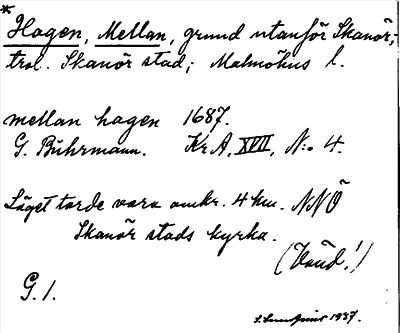 *
Hagen, Mellan, grund utanför Skanör;
trol. Skanör stad; Malmöhus l.
mellan hagen 1687.
G. Buhrmann. Kr A, XVII, N:o 4.
Läget torde vara omkr. 4 km. NNÖ
Skanör stads kyrka.
(Vänd!)
G. 1.
1937.